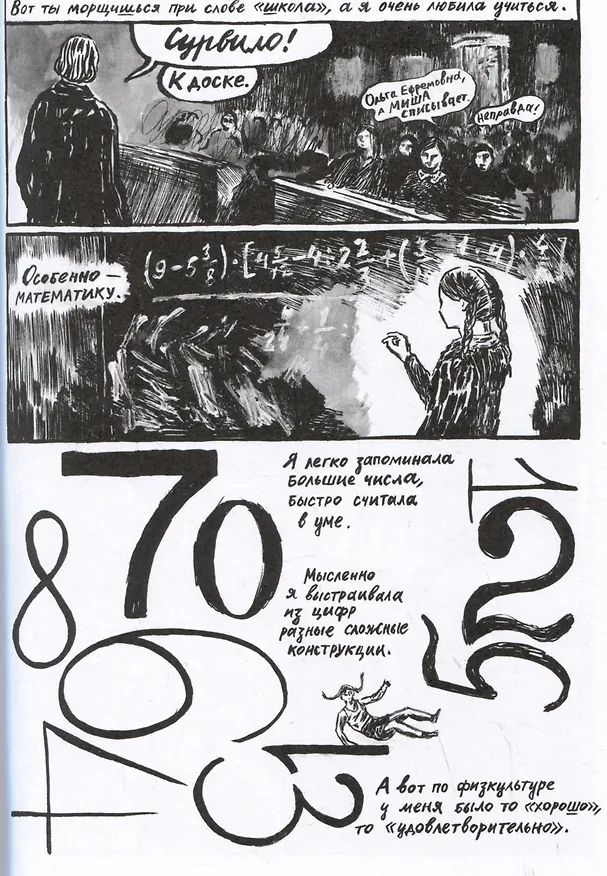 Вот ты морщишься при слове «школа», а я очень любила учиться.
Сурвило!
К доске.
Ольга Ефремовна,
а Миша
списывает.
Неправда!
Особенно —
математику.
Я легко запоминала
большие числа,
быстро считала
в уме.
70
1
2
5
8
Мысленно
я выстраивала
из цифр
разные сложные
конструкции.
9
6
4
3
1
А вот по физкультуре
у меня было то «хорошо»,
то «удовлетворительно».